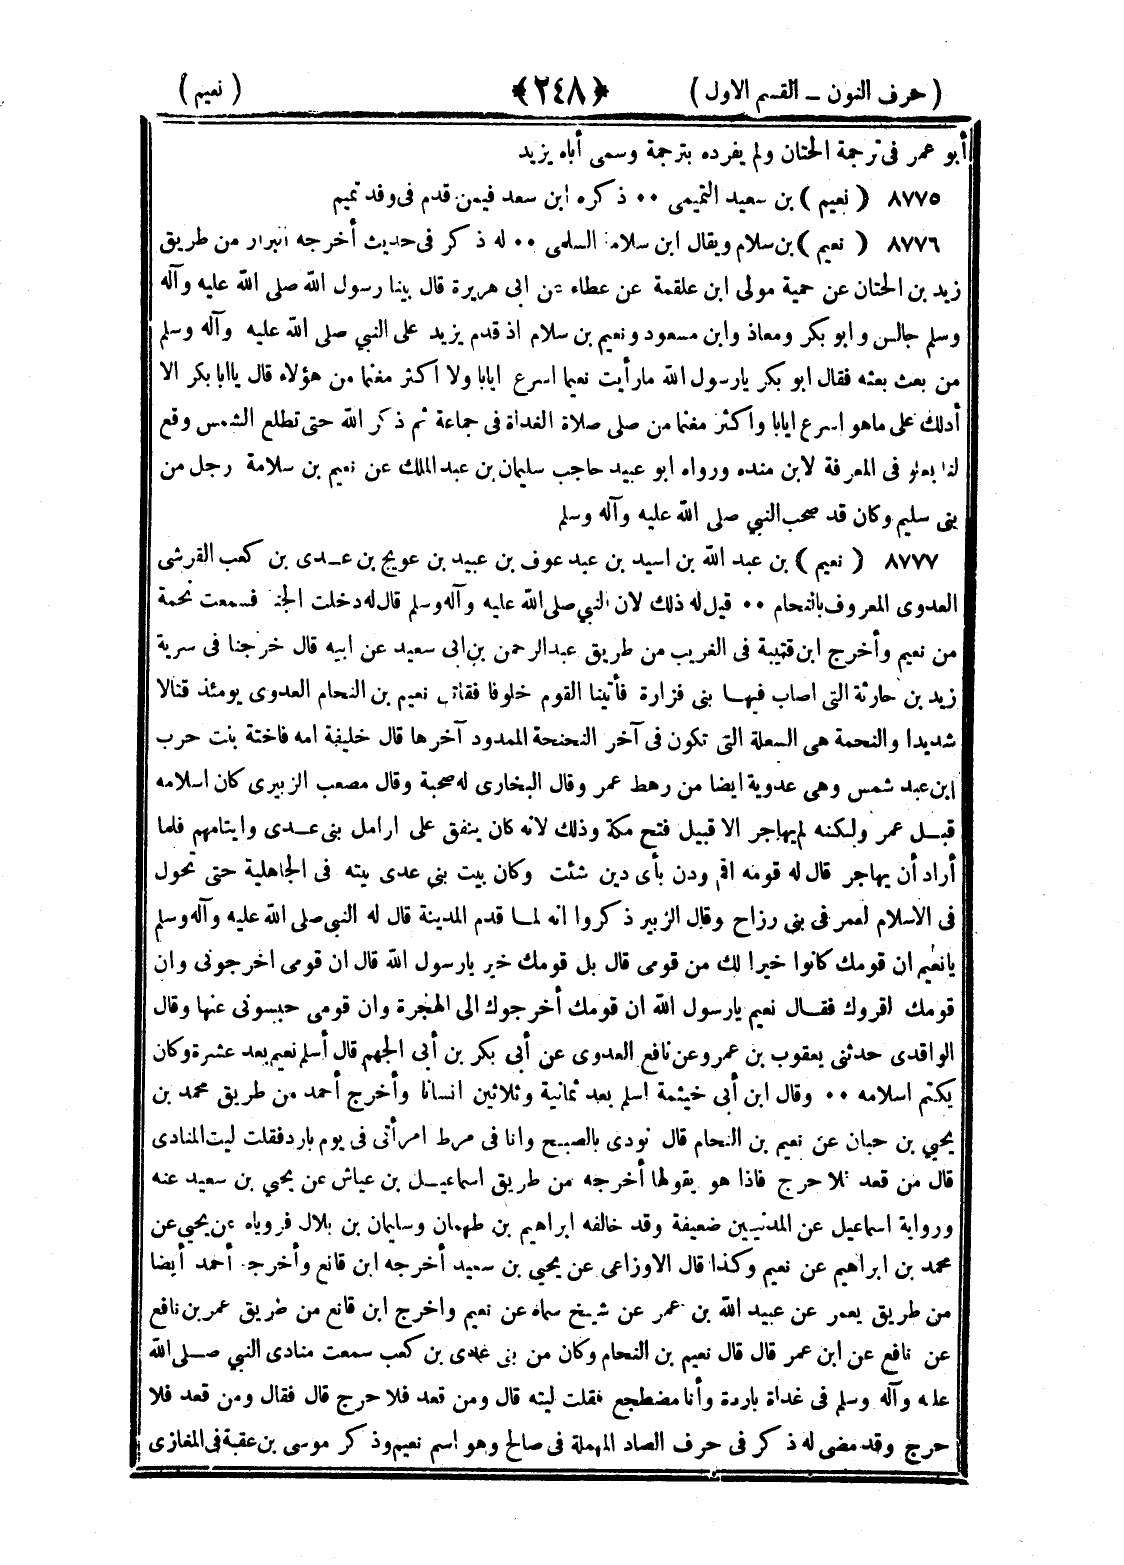 ( حرف النون ــ القسم الاول ) ﴿٢٤٨﴾ ( نعيم )
أبو عمر فى ترجمة الحتان ولم يفرده بترجمة وسمى أباه يزيد
٨٧٧٥ ( نعيم ) بن سعيد التميمى ٠٠ ذكره ابن سعد فيمن قدم فى وفد تميم
٨٧٧٦ ( نعيم ) بن سلام ويقال ابن سلامة السلمى ٠٠ له ذكر فى حديث أخرجه البزار من طريق
زيد بن الحتان عن حمية مولى ابن علقمة عن عطاء عن ابى هريرة قال بينا رسول الله صلى الله عليه وآله
وسلم جالس وابو بكر ومعاذ وابن مسعود ونعيم بن سلام اذ قدم يزيد على النبي صلى الله عليه وآله وسلم
من بعث بعثه فقال ابو بكر يارسول الله مارأيت نعيما اسرع ايابا ولا اكثر مغنما من هؤلاء قال ياابا بكر الا
أدلك على ماهو اسرع ايابا واكثر مغنما من صلى صلاة الغداة فى جماعة ثم ذكر الله حتى تطلع الشمس وقع
لنا بعلو فى المعرفة لابن منده ورواه ابو عبيد حاجب سليمان بن عبد الملك عن نعيم بن سلامة رجل من
بنى سليم وكان قد صحب النبي صلى الله عليه وآله وسلم
٨٧٧٧ ( نعيم ) بن عبد الله بن اسيد بن عبد عوف بن عبيد بن عويج بن عــدى بن كعب القرشى
العدوى المعروف بالنحام ٠٠ قيل له ذلك لان النبي صلى الله عليه وآله وسلم قال له دخلت الجنة فسمعت نحمة
من نعيم وأخرج ابن قتيبة فى الغريب من طريق عبدالرحمن بن ابى سعيد عن ابيه قال خرجنا فى سرية
زيد بن حارثة التى اصاب فيهــا بنى فزارة فأتينا القوم خلوفا فقاتل نعيم بن النحام العدوى يومئذ قتالا
شديدا والنحمة هى السعلة التى تكون فى آخر النحنحة الممدود آخرها قال خليفة امه فاختة بنت حرب
ابن عبد شمس وهى عدوية ايضا من رهط عمر وقال البخارى له صحبة وقال مصعب الزبيرى كان اسلامه
قبــل عمر ولكنه لم يهاجر الا قبيل فتح مكة وذلك لانه كان ينفق على ارامل بنى عــدى وايتامهم فلما
أراد أن يهاجر قال له قومه اقم ودن بأى دين شئت وكان بيت بنى عدى بيته فى الجاهلية حتى تحول
فى الاسلام لعمر فى بنى رزاح وقال الزبير ذكروا انه لمــا قدم المدينة قال له النبي صلى الله عليه وآله وسلم
يانعيم ان قومك كانوا خيرا لك من قومى قال بل قومك خير يارسول الله قال ان قومى اخرجونى وان
قومك اقروك فقــال نعيم يارسول الله ان قومك أخرجوك الى الهجرة وان قومى حبسونى عنها وقال
الواقدى حدثنى يعقوب بن عمرو عن نافع العدوى عن أبى بكر بن أبى الجهم قال أسلم نعيم بعد عشرة وكان
يكتم اسلامه ٠٠ وقال ابن أبى خيثمة اسلم بعد ثمانية وثلاثين انسانا وأخرج أحمد من طريق محمد بن
يحيي بن حبان عن نعيم بن النحام قال نودى بالصبح وانا فى مرط امرأتى فى يوم بارد فقلت ليت المنادى
قال من قعد فلا حرج فاذا هو يقولها أخرجه من طريق اسماعيــل بن عياش عن يحيي بن سعيد عنه
ورواية اسماعيل عن المدنيــين ضعيفة وقد خالفه ابراهيم بن طهمان وسليمان بن بلال فروياه عن يحيي عن
محمد بن ابراهيم عن نعيم وكذا قال الاوزاعى عن يحيي بن سعيد أخرجه ابن قانع وأخرجه أحمد أيضا
من طريق يعمر عن عبيد الله بن عمر عن شيخ سماه عن نعيم واخرج ابن قانع من طريق عمر بن نافع
عن نافع عن ابن عمر قال قال نعيم بن النحام وكان من بنى عدى بن كعب سمعت منادى النبي صــلى الله
عليه وآله وسلم فى غداة باردة وأنا مضطجع فقلت ليته قال ومن قعد فلا حرج قال فقال ومن قعد فلا
حرج وقد مضى له ذكر فى حرف الصاد المهملة فى صالح وهو اسم نعيم وذكر موسى بن عقبة فى المغازى